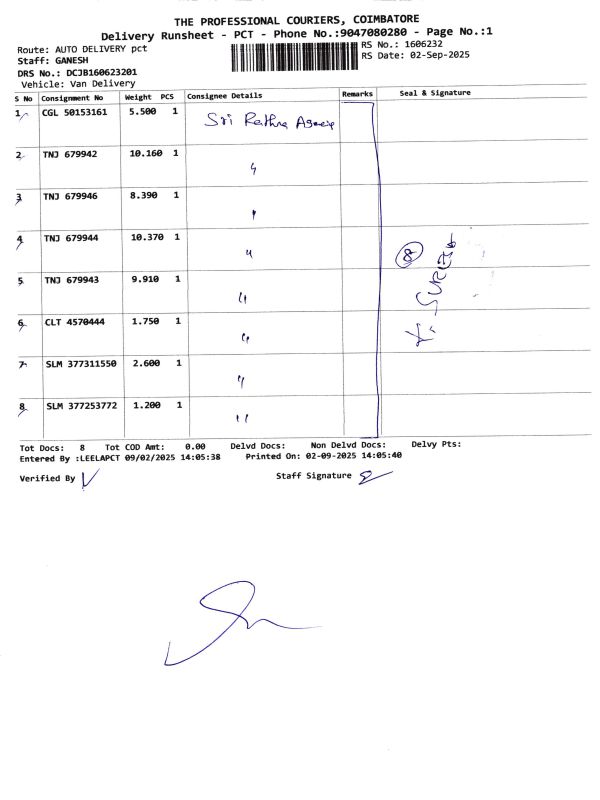 THE PROFESSIONAL COURIERS, COIMBATORE
Delivery Runsheet - PCT - Phone No.:9047080280 - Page No.:1
Route: AUTO DELIVERY pct
RS No.: 1606232
Staff: GANESH
RS Date: 02-Sep-2025
DRS No.: DCJB160623201
Vehicle: Van Delivery
S No Consignment No Weight PCS Consignee Details Remarks Seal & Signature
1 CGL 50153161 5.500 1 Sri Rathna
2 TNJ 679942 10.160 1 "
3 TNJ 679946 8.390 1 "
4 TNJ 679944 10.370 1 " 8
5 TNJ 679943 9.910 1 "
6 CLT 4570444 1.750 1 "
7 SLM 377311550 2.600 1 "
8 SLM 377253772 1.200 1 "
Tot Docs: 8 Tot COD Amt: 0.00 Delvd Docs: Non Delvd Docs: Delvy Pts:
Entered By :LEELAPCT 09/02/2025 14:05:38 Printed On: 02-09-2025 14:05:40
Verified By Staff Signature